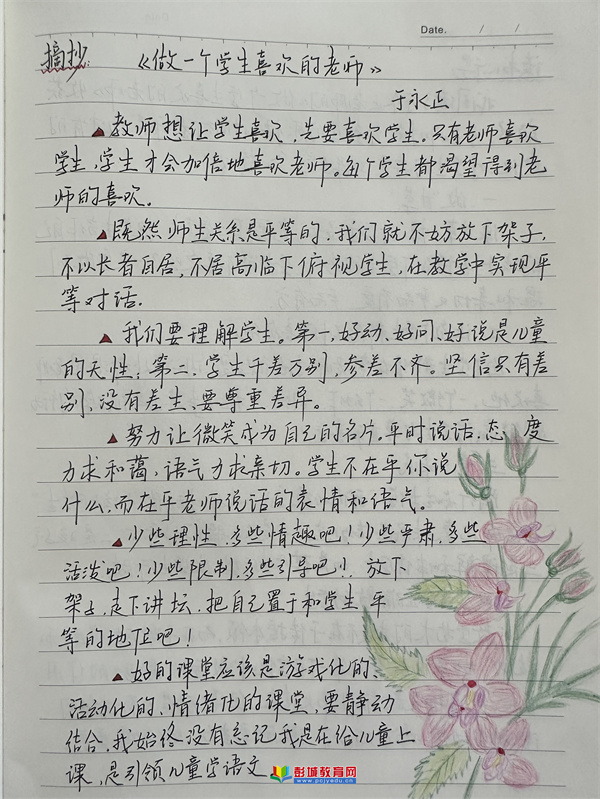 Date. / /
摘抄 《做一个学生喜欢的老师》
于永正
▲教师想让学生喜欢，先要喜欢学生。只有老师喜欢
学生，学生才会加倍地喜欢老师。每个学生都渴望得到老
师的喜欢。
▲既然师生关系是平等的，我们就不妨放下架子，
不以长者自居，不居高临下俯视学生，在教学中实现平
等对话。
▲我们要理解学生。第一，好动、好问、好说是儿童
的天性；第二，学生千差万别，参差不齐。坚信只有差
别，没有差生，要尊重差异。
▲努力让微笑成为自己的名片，平时说话，态度
力求和蔼，语气力求亲切。学生不在乎你说
什么，而在乎老师说话的表情和语气。
▲少些理性，多些情趣吧！少些严肃，多些
活泼吧！少些限制，多些引导吧！放下
架子，走下讲坛，把自己置于和学生平
等的地位吧！
▲好的课堂应该是游戏化的、
活动化的、情绪化的课堂，要静动
结合，我始终没有忘记我是在给儿童上
课，是引领儿童学语文
彭城教育网
www.pcjyedu.com